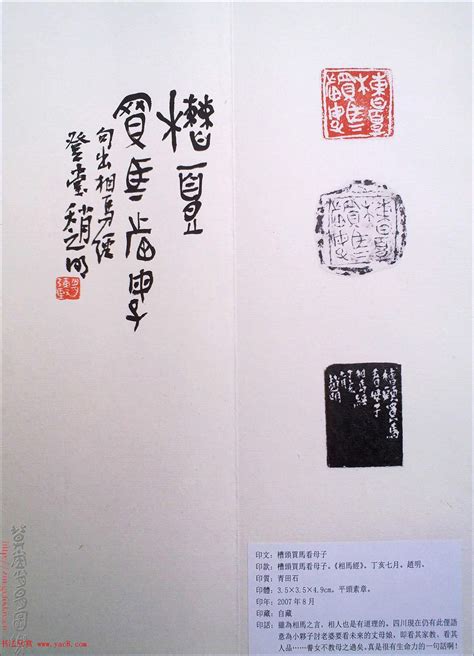 槽頭
買馬看母子
句出相馬經
登堂趙明
槽頭買馬
看母子
相馬經
丁亥
七月
趙明
印文：槽頭買馬看母子
印款：槽頭買馬看母子。《相馬經》，丁亥七月。趙明。
印質：青田石
印體：3.5×3.5×4.9cm。平頭素章。
印年：2007年8月
印藏：自藏
印話：雖為相馬之言，相人也是有道理的。四川現在仍有此俚語
意為小夥子討老婆要看未來的丈母娘，即看其家教、看其
人品……養女不教母之過矣。真是很有生命力的一句話啊！
书法欣赏 www.yac8.com